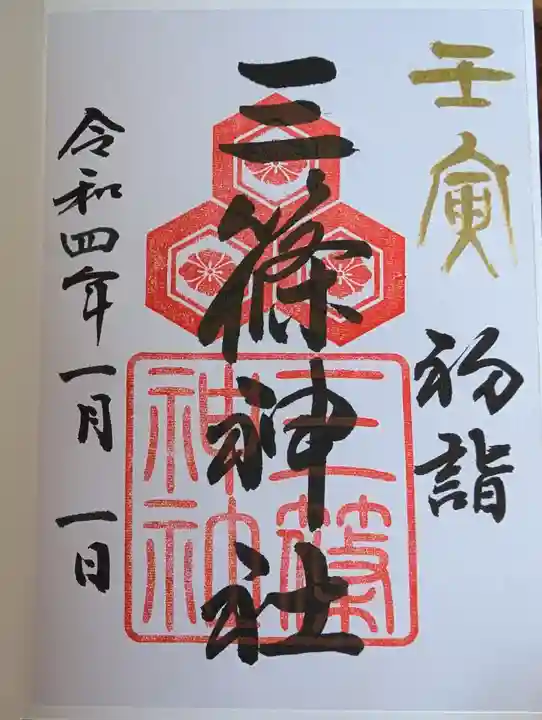 壬寅
初詣
三篠神社
三篠神社
令和四年一月一日